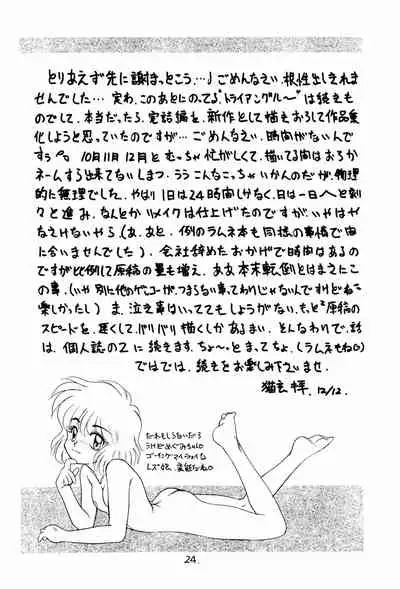 とりあえず先に謝っとこう…♩ごめんなさい.根性出しきれま
せんでした…実わ、このあとにのってる"トライアングル〜"は続きも
のでして、本当だったら、完結編を、新作として描きおろして作品集
化しようと思っていたのですが…ごめんなさい.時間がないんで
すぅ。10月11月12月ともっちゃ忙がしくて、描いてる間はおろか
ネームする出来てないしまつ.ううこんなこっちゃいかんのだが、物理
的に無理でした.やはり1日は24時間しかなく、日は一日へと刻
々と進み.なんとかリメイクは仕上げたのですが、いやはや
なさけないやら(あ、あと、例のラムネ本も同様の事情で間
に合いませんでした).会社辞めたおかげで時間はあるの
ですが比例して原稿の量も増え、ああ本末転倒とはまさにこ
の事.(いや別に他のゲンコーが、つまらない事ってわけじゃないんですけどねー
楽しかったし) ま、泣き事いっててもしょうがない.もっと原稿の
スピードを.速くして、バリバリ描くしかあるまい.そんなわけで、話
は、個人誌の2に続きます.ちょ〜っとまってちょ.(ラムネもね)
ではでは、続きをお楽しみ下さいませ.
猫玄 拝. 12/12.
だれもしらないだろ
うけどめぐみちゃん
ゴーイングマイウェイな
24.